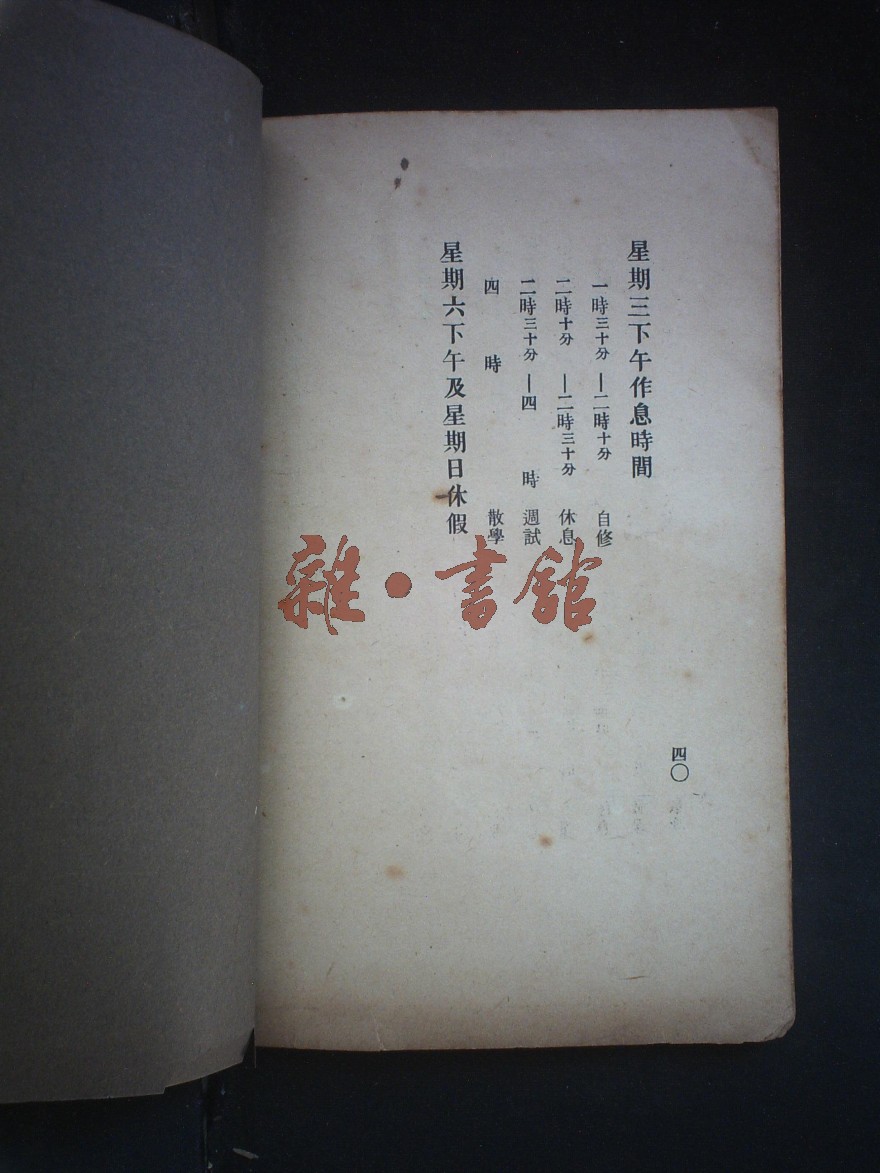 星期三下午作息時間
一時三十分——二時十分 自修
二時十分——二時三十分 休息
二時三十分——四時 週試
四時 散學
星期六下午及星期日休假
四〇
雜·書館